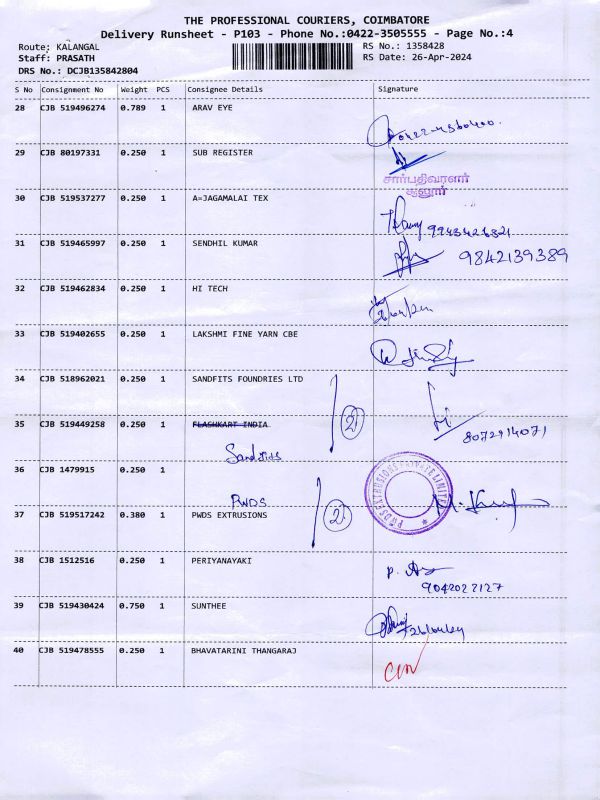 THE PROFESSIONAL COURIERS, COIMBATORE
Delivery Runsheet - P103 - Phone No.:0422-3505555 - Page No.:4
Route; KALANGAL
RS No.: 1358428
Staff: PRASATH
RS Date: 26-Apr-2024
DRS No.: DCJB135842804
S No Consignment No Weight PCS Consignee Details Signature
28 CJB 519496274 0.789 1 ARAV EYE
29 CJB 80197331 0.250 1 SUB REGISTER
சார்பதிவாளர்
சூலூர்
30 CJB 519537277 0.250 1 A=JAGAMALAI TEX
31 CJB 519465997 0.250 1 SENDHIL KUMAR
9842139389
32 CJB 519462834 0.250 1 HI TECH
33 CJB 519402655 0.250 1 LAKSHMI FINE YARN CBE
34 CJB 518962021 0.250 1 SANDFITS FOUNDRIES LTD
2
35 CJB 519449258 0.250 1 FLASHKART INDIA
8072914071
Sandfits
36 CJB 1479915 0.250 1
PWDS
PWDS EXTRUSIONS PRIVATE LIMITED
2
37 CJB 519517242 0.380 1 PWDS EXTRUSIONS
38 CJB 1512516 0.250 1 PERIYANAYAKI
9042022127
39 CJB 519430424 0.750 1 SUNTHEE
40 CJB 519478555 0.250 1 BHAVATARINI THANGARAJ